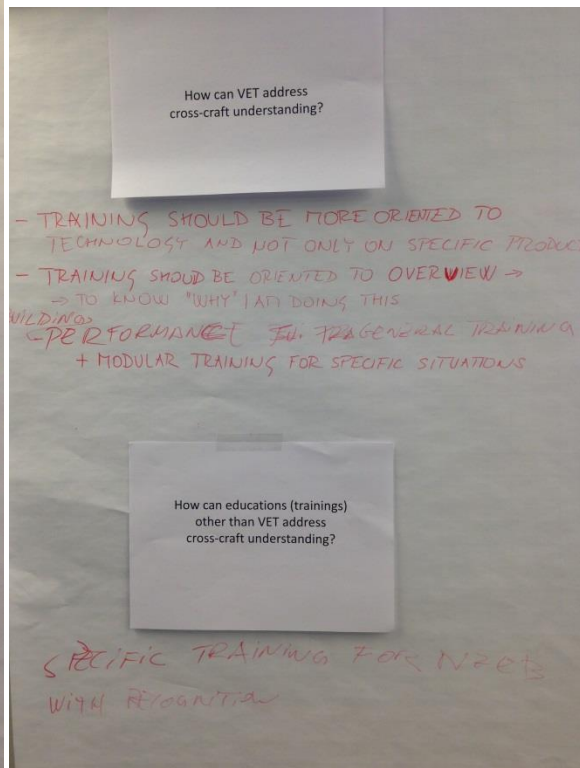 How can VET address
cross-craft understanding?
- TRAINING SHOULD BE MORE ORIENTED TO
TECHNOLOGY AND NOT ONLY ON SPECIFIC PRODUC
- TRAINING SHOUD BE ORIENTED TO OVERVIEW →
→ TO KNOW "WHY" I AM DOING THIS
UILDINGS
- PERFORMANCE GENERAL TRAINING
+ MODULAR TRAINING FOR SPECIFIC SITUATIONS
How can educations (trainings)
other than VET address
cross-craft understanding?
SPECIFIC TRAINING FOR NZEB
WITH RECOGNITION